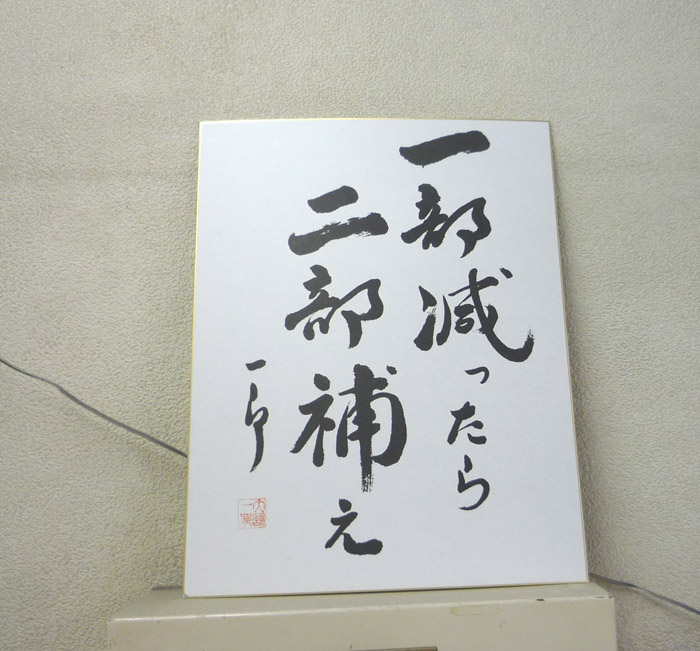 一部減ったら
二部補え
一郎